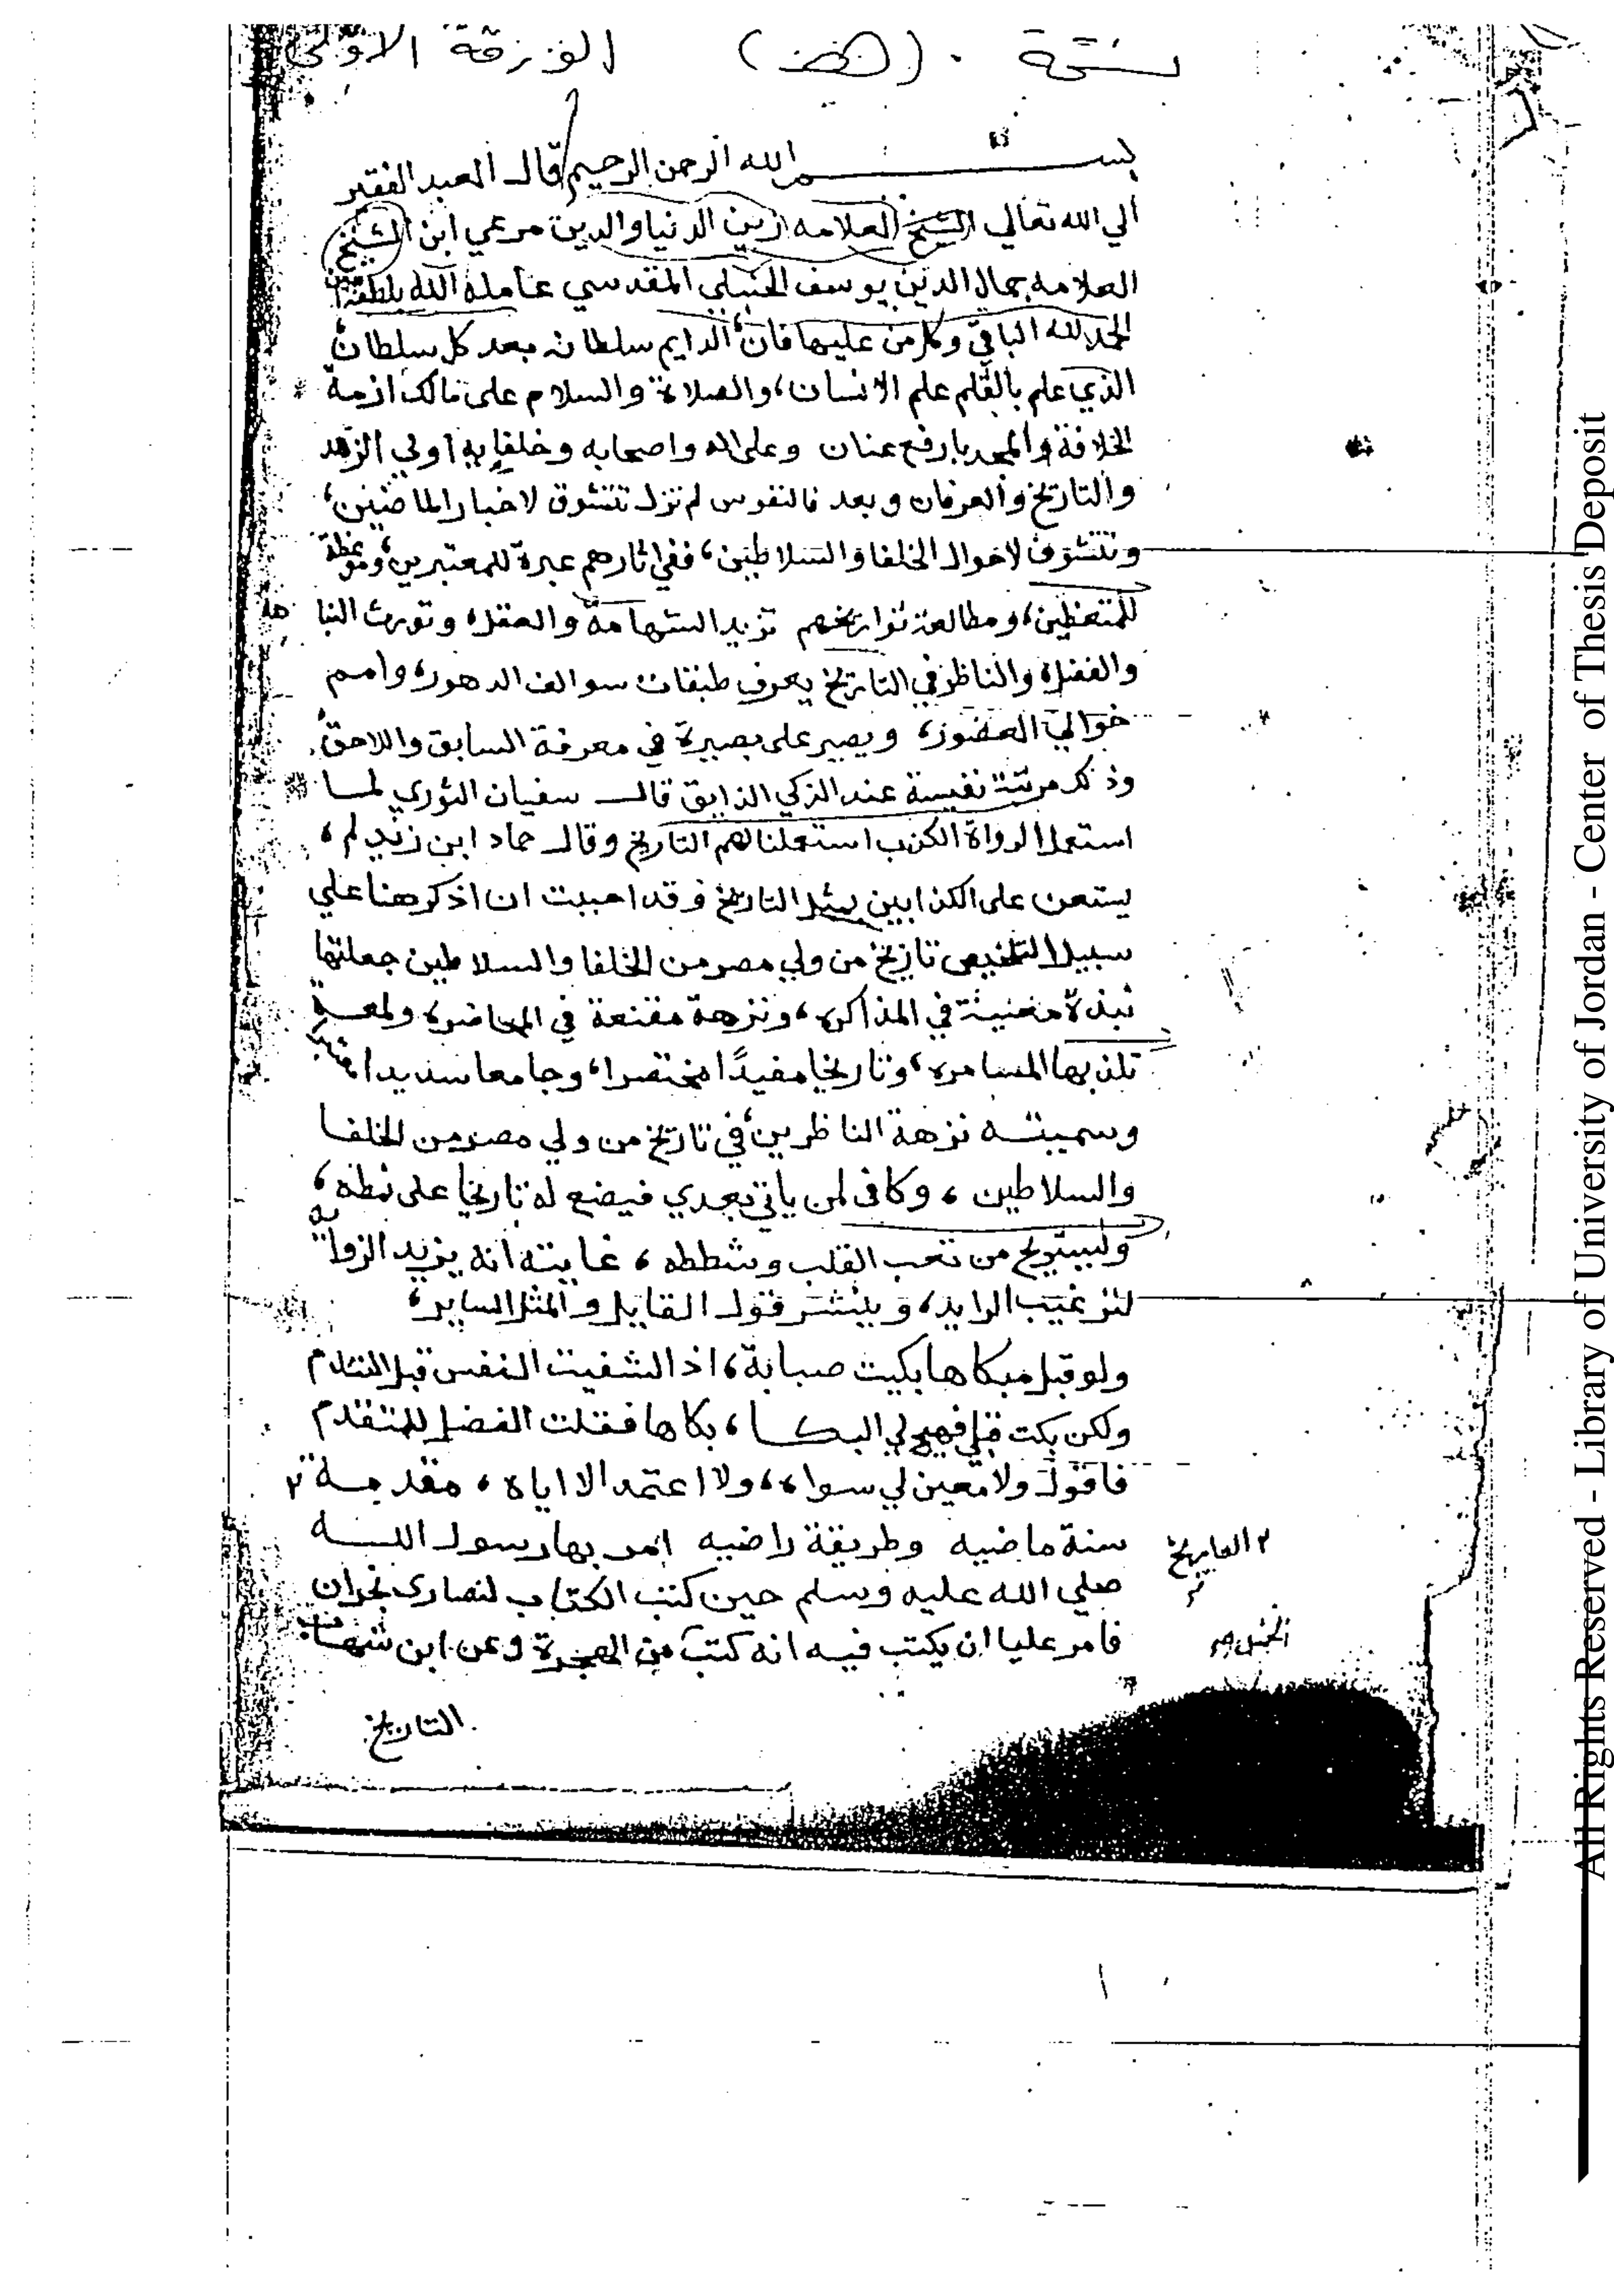 نسخة (هـ) الورقة الاولى
بســـــم الله الرحمن الرحيم قال العبد الفقير
الي الله تعالي الشيخ العلامه زين الدنيا والدين مرعي ابن الشيخ
العلامه جمال الدين يوسف الحنبلي المقدسي عامله الله بلطفه امين
الحمد لله الباقي وكل من عليها فان، الدايم سلطانه بعد كل سلطان،
الذي علم بالقلم علم الانسان، والصلاة والسلام على مالك ازمة
الخلافة والمجد بارفع عنان وعلى اله واصحابه وخلفايه اولي الزهد
والتاريخ والعرفان وبعد فالنفوس لم تزل تتشوق لاخبار الماضين،
وتتشوف لاحوال الخلفا والسلاطين، ففي اثارهم عبرة للمعتبرين، وموعظة
للمتعظين، ومطالعة تواريخهم تزيد الشهامة والعقل، وتورث النباهه
والفضل، والناظر في التاريخ يعرف طبقات سوالف الدهور، وامم
خوالي العصور، ويصير على بصيرة في معرفة السابق واللاحق،
وذلك مرتبة نفيسة عند الزكي الذايق قال سفيان الثوري لما
استعمل الرواة الكذب استعملنا لهم التاريخ وقال حماد ابن زيد لم،
يستعن على الكذابين بمثل التاريخ وقد احببت ان اذكر هنا علي
سبيل التلخيص تاريخ من ولي مصر من الخلفا والسلاطين جعلتها
نبذة مغنية في المذاكره، ونزهة مقنعة في المحاضره، ولمعــة
تلذ بها المسامره، وتاريخا مفيدًا مختصرا، وجامعا سديدا معتبرا
وسميتـه نزهة الناظرين، في تاريخ من ولي مصر من الخلفـا
والسلاطين، وكافى لمن ياتي بعدي فيضع له تاريخا على نمطه،
وليستريح من تعب القلب وشططه، غايته انه يزيد الزوايد
لترغيب الرايد، وينشر قول القايل والمثل الساير،
ولو قبل مبكاها بكيت صبابة، اذا لشفيت النفس قبل التندم
ولكن بكت قبلي فهيج لي البكـــا، بكاها فقلت الفضل للمتقدم
فاقول ولا معين لي سواه، ولا اعتمد الا اياه، مقدمـة ٢
سنة ماضيه وطريقة راضيه امر بها رسول اللـــه
٢ التاريخ
صلي الله عليه وسلم حين كتب الكتاب لنصارى نجران
فامر عليا ان يكتب فيه انه كتب من الهجرة وعن ابن شهاب
التاريخ
All Rights Reserved - Library of University of Jordan - Center of Thesis Deposit